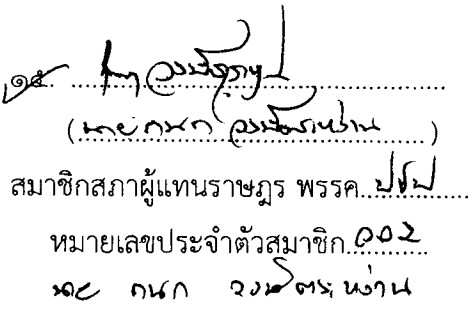 ๑๕.
(นายกนก วงษ์ตระหง่าน)
สมาชิกสภาผู้แทนราษฎร พรรค ปชป
หมายเลขประจำตัวสมาชิก ๐๐๒
นาย กนก วงษ์ตระหง่าน